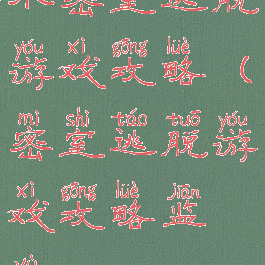 密室逃脱
yóu xì gōng lüè
游戏攻略（
mì shì táo tuō yóu
密室逃脱游
xì gōng lüè jiān
戏攻略监
yù